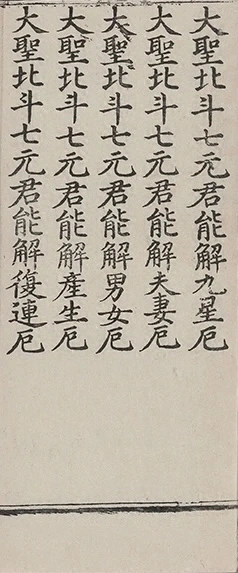 大聖北斗七元君能解九星厄
大聖北斗七元君能解夫妻厄
大聖北斗七元君能解男女厄
大聖北斗七元君能解產生厄
大聖北斗七元君能解復連厄